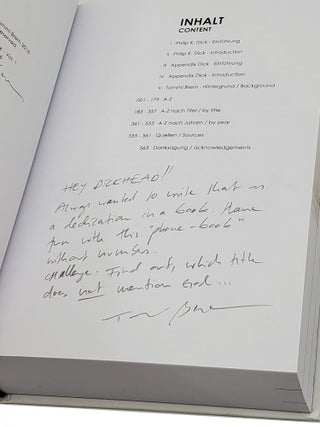 INHALT
CONTENT
I Philip K. Dick - Einführung
II Philip K. Dick - Introduction
III Appendix Dick - Einführung
IV Appendix Dick - Introduction
V Tommi Brem - Hintergrund / Background
001 - 179 A-Z
183 - 357 A-Z nach Titel / by title
361 - 553 A-Z nach Jahren / by year
555 - 561 Quellen / Sources
563 Danksagung / acknowledgements
HEY DICKHEAD!!
Always wanted to write that as
a dedication in a book. Have
fun with this "phone-book"
without numbers.
challenge: Find out, which title
does not mention God...